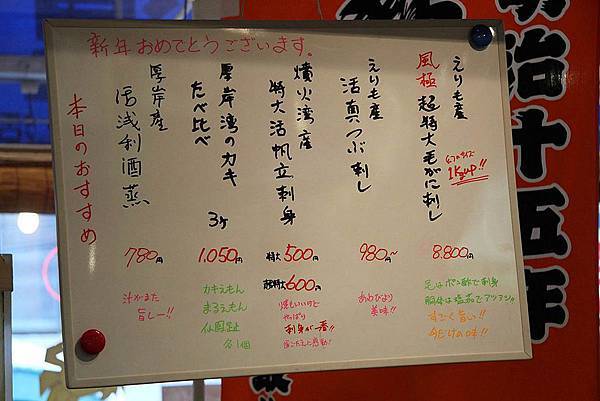 新年おめでとうございます。
えりも産
風極 超特大毛がに刺し
1Kgup!!
8.800円
足はポン酢で刺身
胴体は塩茹でアツアツ
すごく旨い!!
今だけの味!!
えりも産
活真つぶ刺し
980円~
あわびより
美味!!
噴火湾産
特大活帆立刺身
特大 500円
超特大 600円
焼もいいけど
やっぱり
刺身が一番!!
厚岸湾のカキ
たべ比べ
3ヶ
1.050円
カキえもん
まるえもん
弁天かき
各1個
厚岸産
活浅利酒蒸
780円
汁がまた
旨しー!!
本日のおすすめ
明治十五年